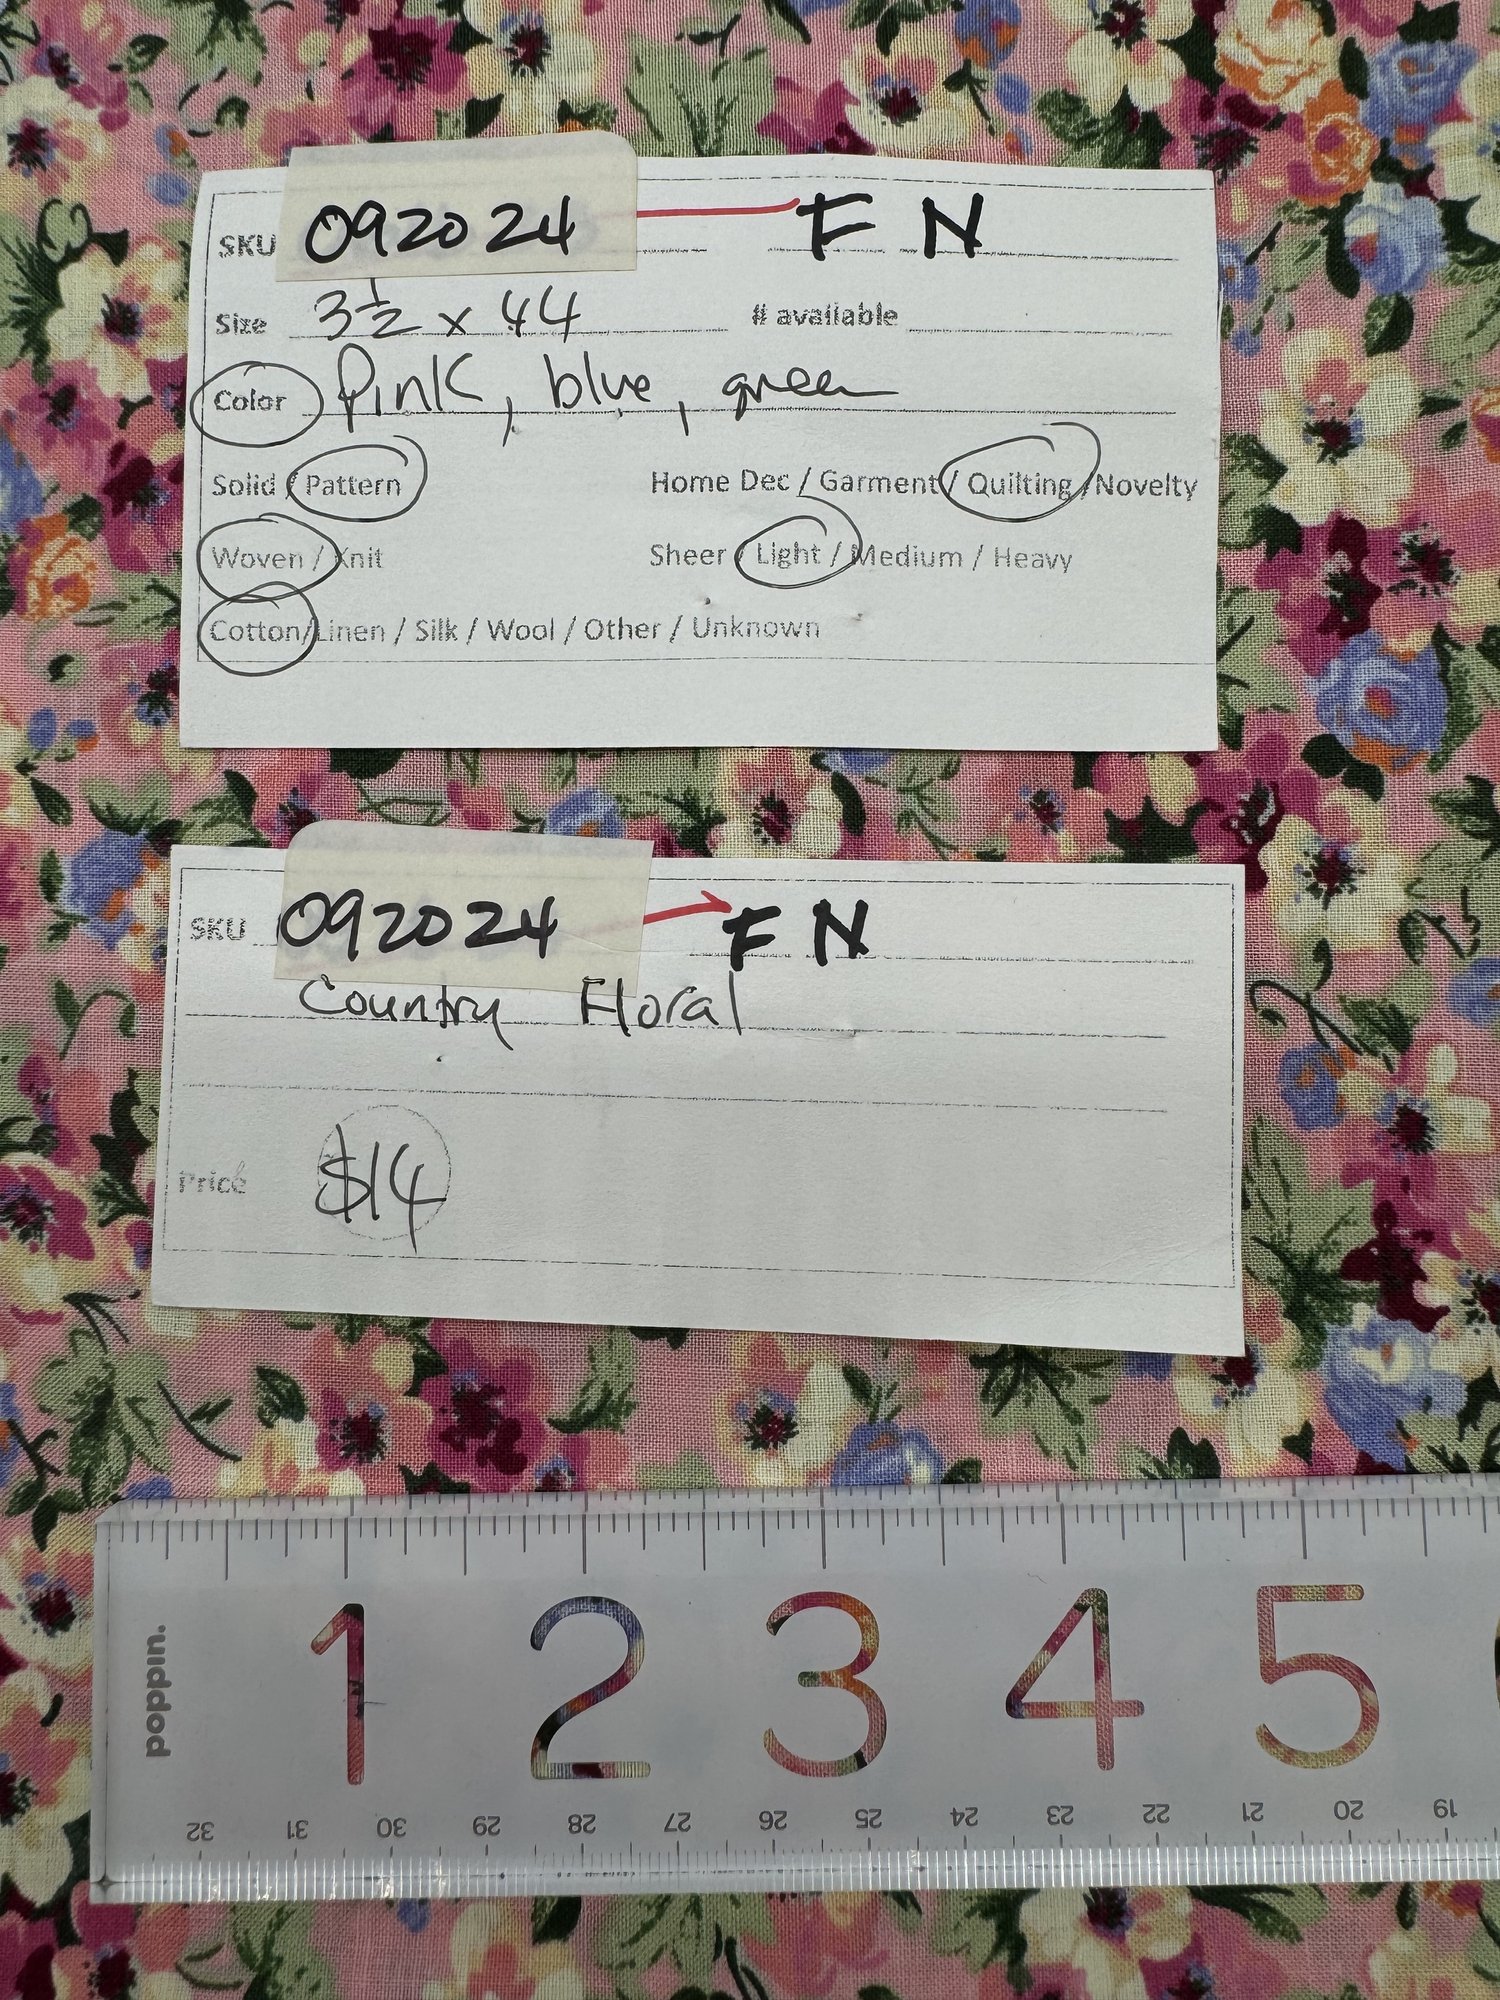 SKU 092024 FN
Size 3 1/2 x 44 # available
Color Pink, blue, green
Solid / Pattern Home Dec / Garment / Quilting / Novelty
Woven / Knit Sheer / Light / Medium / Heavy
Cotton/Linen / Silk / Wool / Other / Unknown
SKU 092024 FN
Country Floral
Price $14
poppin.
1 2 3 4 5
32 31 30 29 28 27 26 25 24 23 22 21 20 19